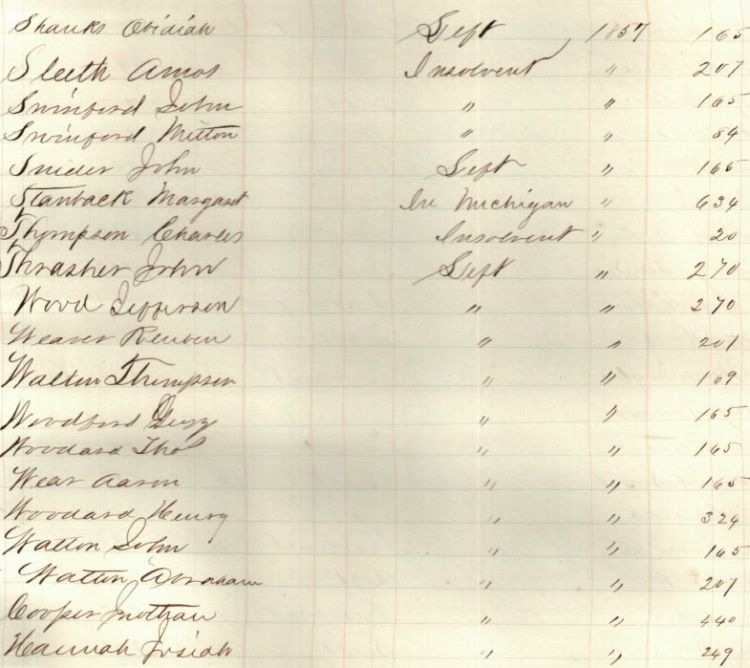 Shanks Obidiah Left 1857 165
Sleeth Amos Insolvent " 207
Swinford John " " 165
Swinford Milton " " 84
Snider John Left " 165
Stanback Margaret In Michigan " 634
Thompson Charles Insolvent " 20
Thrasher John Left " 270
Wood Jefferson " " 270
Weaver Reuben " " 207
Walten Thompson " " 169
Woodford " " 165
Woodard Thos " " 165
Wear Aaron " " 165
Woodard Henry " " 324
Watton John " " 165
Watton Abraham " " 207
Cooper " " 440
Hannah Josiah " " 249